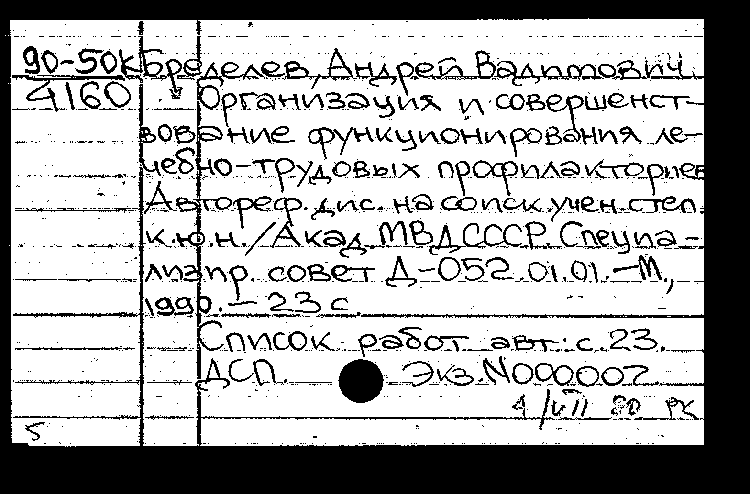 90-50к Бределев, Андрей Вадимович.
4160 Организация и совершенст-
вование функционирования ле-
чебно-трудовых профилакториев
Автореф. дис. на соиск. учен. степ.
к.ю.н. / Акад. МВД СССР. Специа-
лизир. совет Д-052.01.01. - М.,
1990. - 23 с.
Список работ авт.: с. 23.
ДСП. Экз. N000007
4/VII 90 РК
5